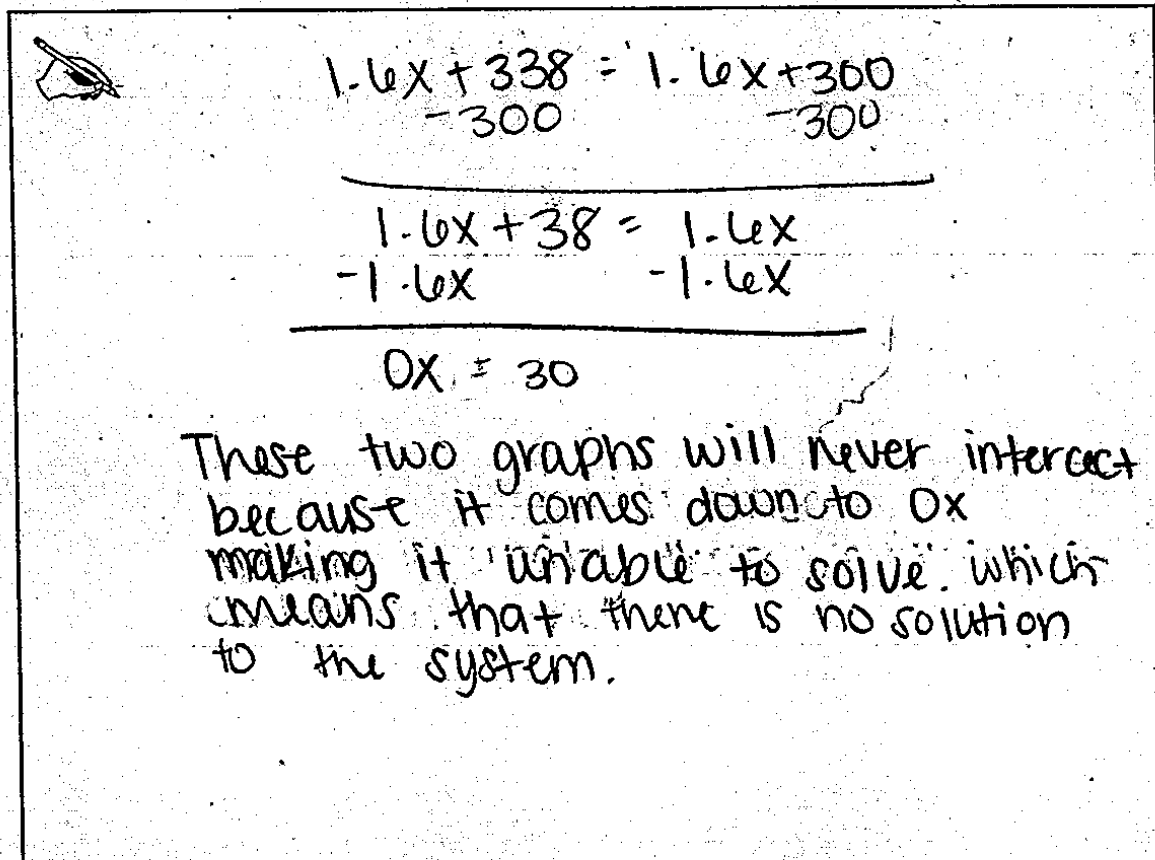 1.6x + 338 = 1.6x + 300
-300 -300
1.6x + 38 = 1.6x
-1.6x -1.6x
0x = 30
These two graphs will never intercect
because it comes down to 0x
making it unable to solve. which
means that there is no solution
to the system.